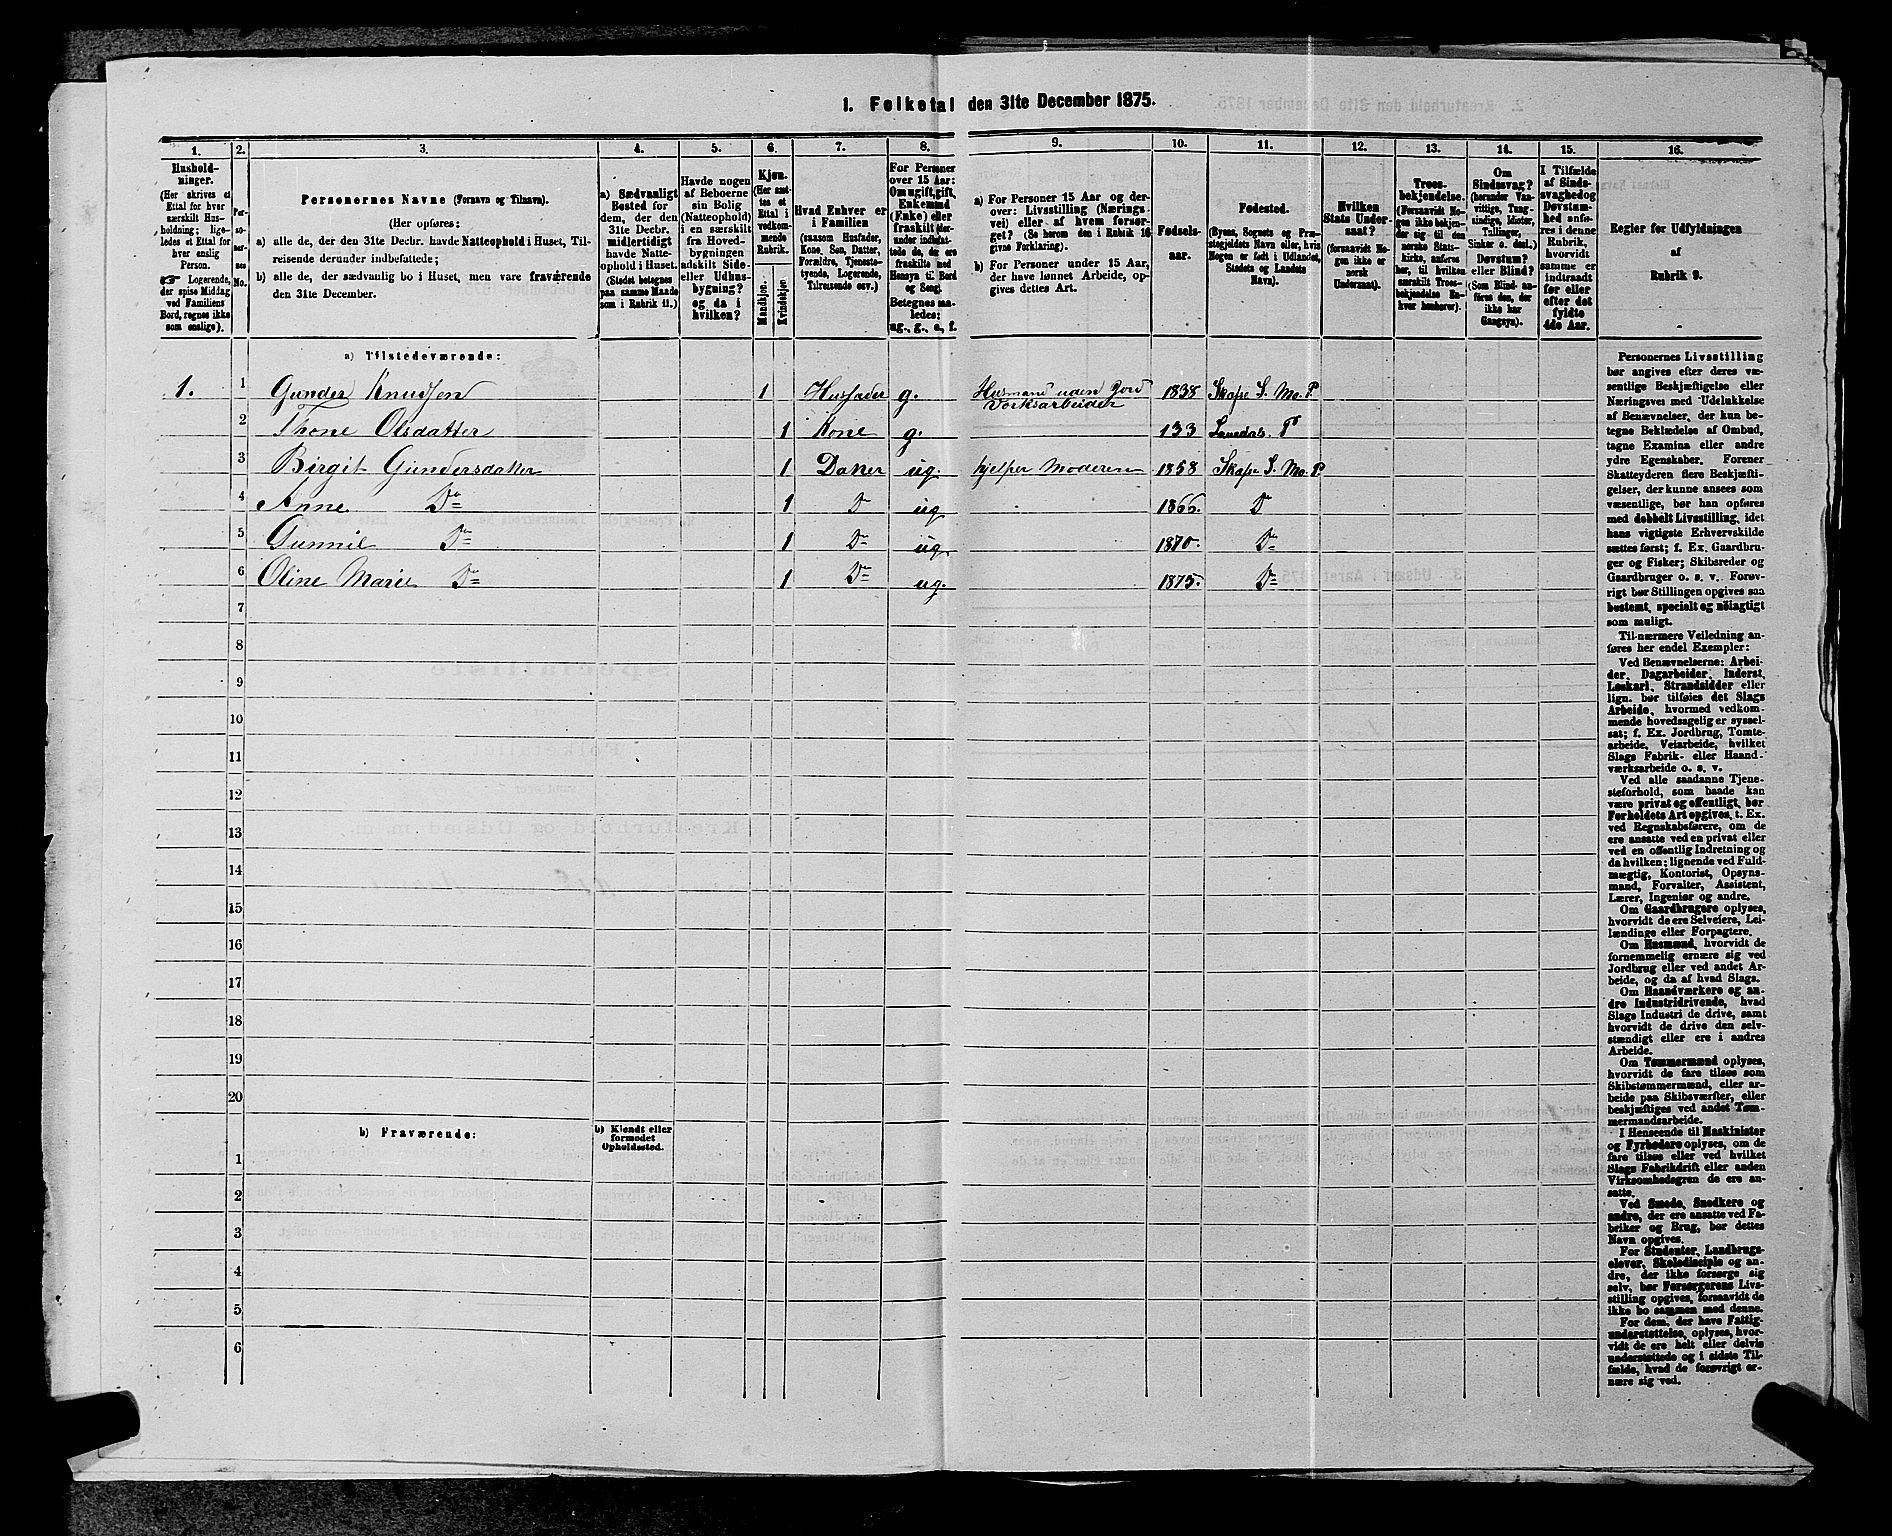 1. Folketal den 31te December 1875.
1.
Hushold-
ninger.
(Her skrives et
Ettal for hver
særskilt Hus-
holdning; lige-
ledes et Ettal for
hver enslig
Person.
Logerende,
der spise Middag
ved Familiens
Bord, regnes ikke
som enslige).
2.
Per-
soner-
nes
No.
3.
Personernes Navne (Fornavn og Tilnavn).
(Her opføres:
a) alle de, der den 31te Decbr. havde Natteophold i Huset, Til-
reisende derunder indbefattede;
b) alle de, der sædvanlig bo i Huset, men vare fraværende
den 31te December.
4.
a) Sædvanligt
Bosted for
dem, der den
31te Decbr.
midlertidigt
havde Natte-
ophold i Huset.
(Stedet betegnes
paa samme Maade
som i Rubrik 11.)
5.
Havde nogen
af Beboerne
sin Bolig
(Natteophold)
i en særskilt
fra Hoved-
bygningen
adskilt Side-
eller Udhus-
bygning?
og da i
hvilken?
6.
Kjøn.
(Her sæt-
tes et
Ettal i
vedkom-
mende
Rubrik.
Mandkjøn.
Kvindekjøn.
7.
Hvad Enhver er
i Familien
(saasom Husfader,
Kone, Søn, Datter,
Forældre, Tjeneste-
tyende, Logerende,
Tilreisende osv.)
8.
For Personer
over 15 Aar:
Om ugift, gift,
Enkemand
(Enke) eller
fraskilt (der-
under indbefat-
tede de, der ere
fraskilte med
Hensyn til Bord
og Seng).
Betegnes saa-
ledes:
ug., g., e., f.
9.
a) For Personer 15 Aar og der-
over: Livsstilling (Nærings-
vei) eller af hvem forsør-
get? (Se herom den i Rubrik 16
givne Forklaring).
b) For Personer under 15 Aar,
der have lønnet Arbeide, op-
gives dettes Art.
10.
Fødsels-
aar.
11.
Fødested.
(Byens, Sognets og Præ-
stegjeldets Navn eller, hvis
Nogen er født i Udlandet,
Stedets og Landets
Navn).
12.
Hvilken
Stats Under-
saat?
(forsaavidt No-
gen ikke er
norsk
Undersaat).
13.
Troes-
bekjendelse.
(Forsaavidt No-
gen ikke bekjen-
der sig til den
norske Stats-
kirke, anføres
her, til hvilken
særskilt Troes-
bekjendelse En-
hver henhører).
14.
Om
Sindssvag?
(herunder Van-
vittige, Tung-
sindige, Idioter,
Tullinger,
Sinker o. desl.)
Døvstum?
eller Blind?
(Som Blind an-
føres den, der
ikke har
Gangsyn).
15.
I Tilfælde
af Sinds-
svaghed og
Døvstum-
hed anfø-
res i denne
Rubrik,
hvorvidt
samme er
indtraadt
før eller
efter det
fyldte
4de Aar.
16.
Regler for Udfyldningen
af
Rubrik 9.
a) Tilstedeværende:
1. 1 Gunder Knudsen 1 Husfader g. Husmand uden Jord
Værksarbeider 1838 Skafse S. Mo. P.
2 Thone Olsdatter 1 Kone g. 133 Laurdals P
3 Birgit Gundersdatter 1 Datter ug. hjelper Moderen 1858 Skafse S. Mo. P.
4 Anne Do 1 Do ug 1866. Do
5 Gunnil Do 1 Do ug. 1870. Do
6 Oline Marie Do 1 Do ug. 1875. Do
7
8
9
10
11
12
13
14
15
16
17
18
19
20
b) Fraværende:
b) Kjendt eller
formodet
Opholdssted.
1
2
3
4
5
6
Personernes Livsstilling
bør angives efter deres væ-
sentlige Beskjæftigelse eller
Næringsvei med Udelukkelse
af Benævnelser, der kun be-
tegne Beklædelse af Ombud,
tagne Examina eller andre
ydre Egenskaber. Forener
Skatteyderen flere Beskjæfti-
gelser, der kunne ansees som
væsentlige, bør han opføres
med dobbelt Livsstilling, idet
hans vigtigste Erhvervskilde
sættes først; f. Ex. Gaardbru-
ger og Fisker; Skibsreder og
Gaardbruger o. s. v. Forøv-
rigt bør Stillingen opgives saa
bestemt, specielt og nøiagtigt
som muligt.
Til nærmere Veiledning an-
føres her endel Exempler:
Ved Benævnelserne: Arbei-
der, Dagarbeider, Inderst,
Løskarl, Strandsidder eller
lign. bør tilføies det Slags
Arbeide, hvormed vedkom-
mende hovedsagelig er syssel-
sat; f. Ex. Jordbrug, Tomte-
arbeide, Veiarbeide, hvilket
Slags Fabrik- eller Haand-
værksarbeide o. s. v.
Ved alle saadanne Tjene-
steforhold, som baade kan
være privat og offentligt, bør
Forholdets Art opgives, t. Ex.
ved Regnskabsførere, om de
ere ansatte ved en privat eller
ved en offentlig Indretning og
da hvilken; lignende ved Fuld-
mægtig, Kontorist, Opsyns-
mand, Forvalter, Assistent,
Lærer, Ingeniør og andre.
Om Gaardbrugere oplyses,
hvorvidt de ere Selveiere, Lei-
lændinge eller Forpagtere.
Om Husmænd, hvorvidt de
fornemmelig ernære sig ved
Jordbrug eller ved andet Ar-
beide, og da af hvad Slags.
Om Haandværkere og an-
dre Industridrivende, hvad
Slags Industri de drive, samt
hvorvidt de drive den selv-
stændigt eller ere i andres
Arbeide.
Om Tømmermænd oplyses,
hvorvidt de fare tilsøs som
Skibstømmermænd, eller ar-
beide paa Skibsværfter, eller
beskjæftiges ved andet Tøm-
mermandsarbeide.
I Henseende til Maskinister
og Fyrbødere oplyses, om de
fare tilsøs eller ved hvilket
Slags Fabrikdrift eller anden
Virksomhedsgren de ere an-
satte.
Ved Smede, Snedkere og
andre, der ere ansatte ved Fa-
briker og Brug, bør dettes
Navn opgives.
For Studenter, Landbrugs-
elever, Skoledisciple og an-
dre, der ikke forsørge sig
selv, bør Forsørgerens Livs-
stilling opgives, forsaavidt de
ikke bo sammen med denne.
For dem, der have Fattig-
understøttelse, oplyses, hvor-
vidt de ere helt eller delvis
understøttede og i sidste Til-
fælde, hvad de forøvrigt er-
nære sig ved.